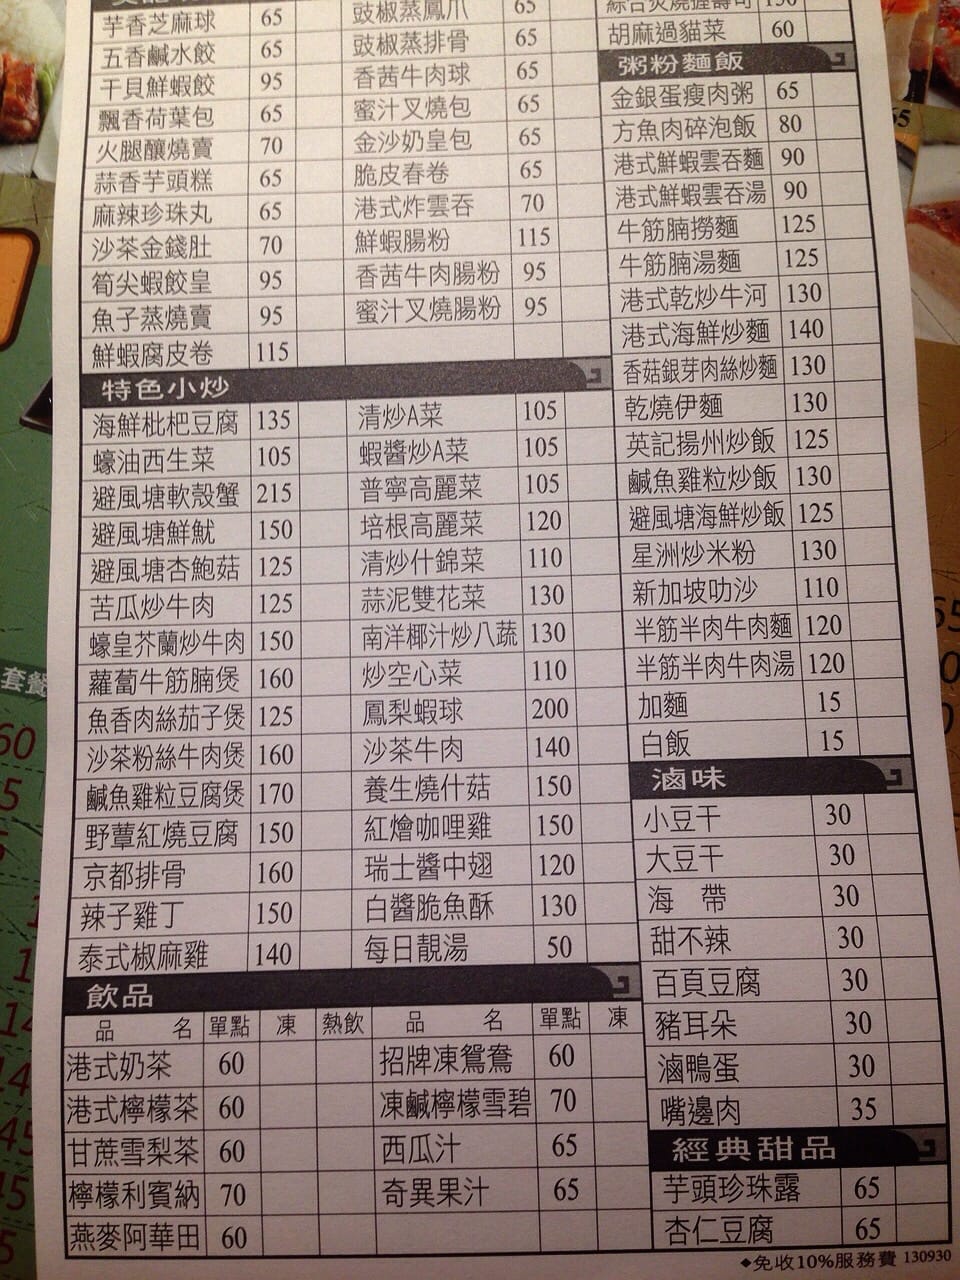 芋香芝麻球 65
五香鹹水餃 65
干貝鮮蝦餃 95
飄香荷葉包 65
火腿釀燒賣 70
蒜香芋頭糕 65
麻辣珍珠丸 65
沙茶金錢肚 70
筍尖蝦餃皇 95
魚子蒸燒賣 95
鮮蝦腐皮卷 115
豉椒蒸鳳爪 65
豉椒蒸排骨 65
香茜牛肉球 65
蜜汁叉燒包 65
金沙奶皇包 65
脆皮春卷 65
港式炸雲吞 70
鮮蝦腸粉 115
香茜牛肉腸粉 95
蜜汁叉燒腸粉 95
特色小炒
海鮮枇杷豆腐 135
蠔油西生菜 105
避風塘軟殼蟹 215
避風塘鮮魷 150
避風塘杏鮑菇 125
苦瓜炒牛肉 125
蠔皇芥蘭炒牛肉 150
蘿蔔牛筋腩煲 160
魚香肉絲茄子煲 125
沙茶粉絲牛肉煲 160
鹹魚雞粒豆腐煲 170
野蕈紅燒豆腐 150
京都排骨 160
辣子雞丁 150
泰式椒麻雞 140
清炒A菜 105
蝦醬炒A菜 105
普寧高麗菜 105
培根高麗菜 120
清炒什錦菜 110
蒜泥雙花菜 130
南洋椰汁炒八蔬 130
炒空心菜 110
鳳梨蝦球 200
沙茶牛肉 140
養生燒什菇 150
紅燴咖哩雞 150
瑞士醬中翅 120
白醬脆魚酥 130
每日靚湯 50
飲品
品 名 單點 凍 熱飲 品 名 單點 凍
港式奶茶 60
港式檸檬茶 60
甘蔗雪梨茶 60
檸檬利賓納 70
燕麥阿華田 60
招牌凍鴛鴦 60
凍鹹檸檬雪碧 70
西瓜汁 65
奇異果汁 65
胡麻過貓菜 60
粥粉麵飯
金銀蛋瘦肉粥 65
方魚肉碎泡飯 80
港式鮮蝦雲吞麵 90
港式鮮蝦雲吞湯 90
牛筋腩撈麵 125
牛筋腩湯麵 125
港式乾炒牛河 130
港式海鮮炒麵 140
香菇銀芽肉絲炒麵 130
乾燒伊麵 130
英記揚州炒飯 125
鹹魚雞粒炒飯 130
避風塘海鮮炒飯 125
星洲炒米粉 130
新加坡叻沙 110
半筋半肉牛肉麵 120
半筋半肉牛肉湯 120
加麵 15
白飯 15
滷味
小豆干 30
大豆干 30
海 帶 30
甜不辣 30
百頁豆腐 30
豬耳朵 30
滷鴨蛋 30
嘴邊肉 35
經典甜品
芋頭珍珠露 65
杏仁豆腐 65
◆免收10%服務費 130930
套餐